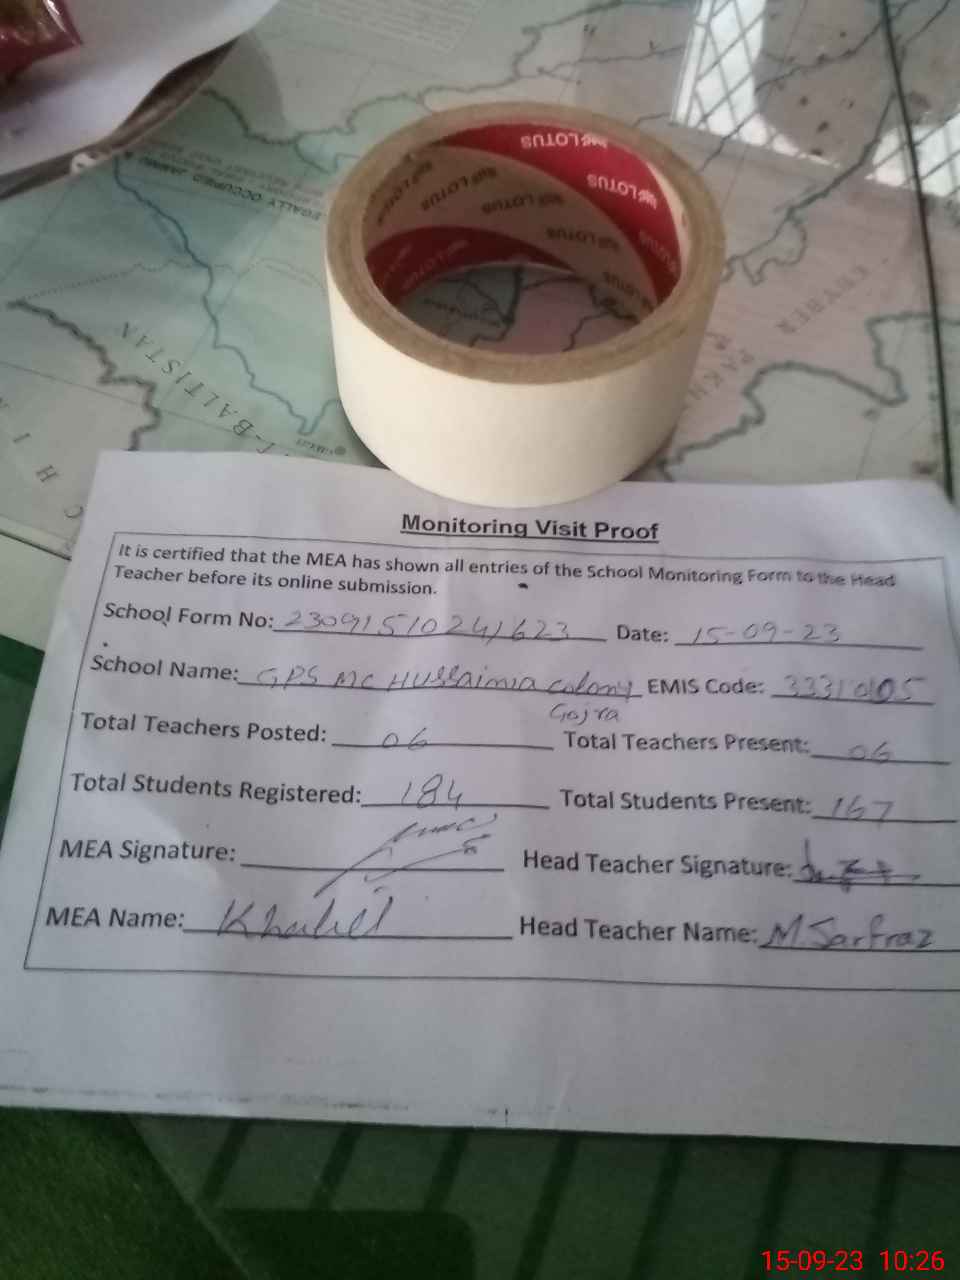 LOTUS
LOTUS
LOTUS
LOTUS
LOTUS
LOTUS
LOTUS
-BALTISTAN
KHYBER
PAKH
Monitoring Visit Proof
It is certified that the MEA has shown all entries of the School Monitoring Form to the Head
Teacher before its online submission.
School Form No: 23091510241623 Date: 15-09-23
School Name: GPS MC Hussainia colony EMIS Code: 33310105
Gojra
Total Teachers Posted: 06 Total Teachers Present: 06
Total Students Registered: 184 Total Students Present: 167
MEA Signature: Head Teacher Signature:
MEA Name: Head Teacher Name: M Sarfraz
15-09-23 10:26